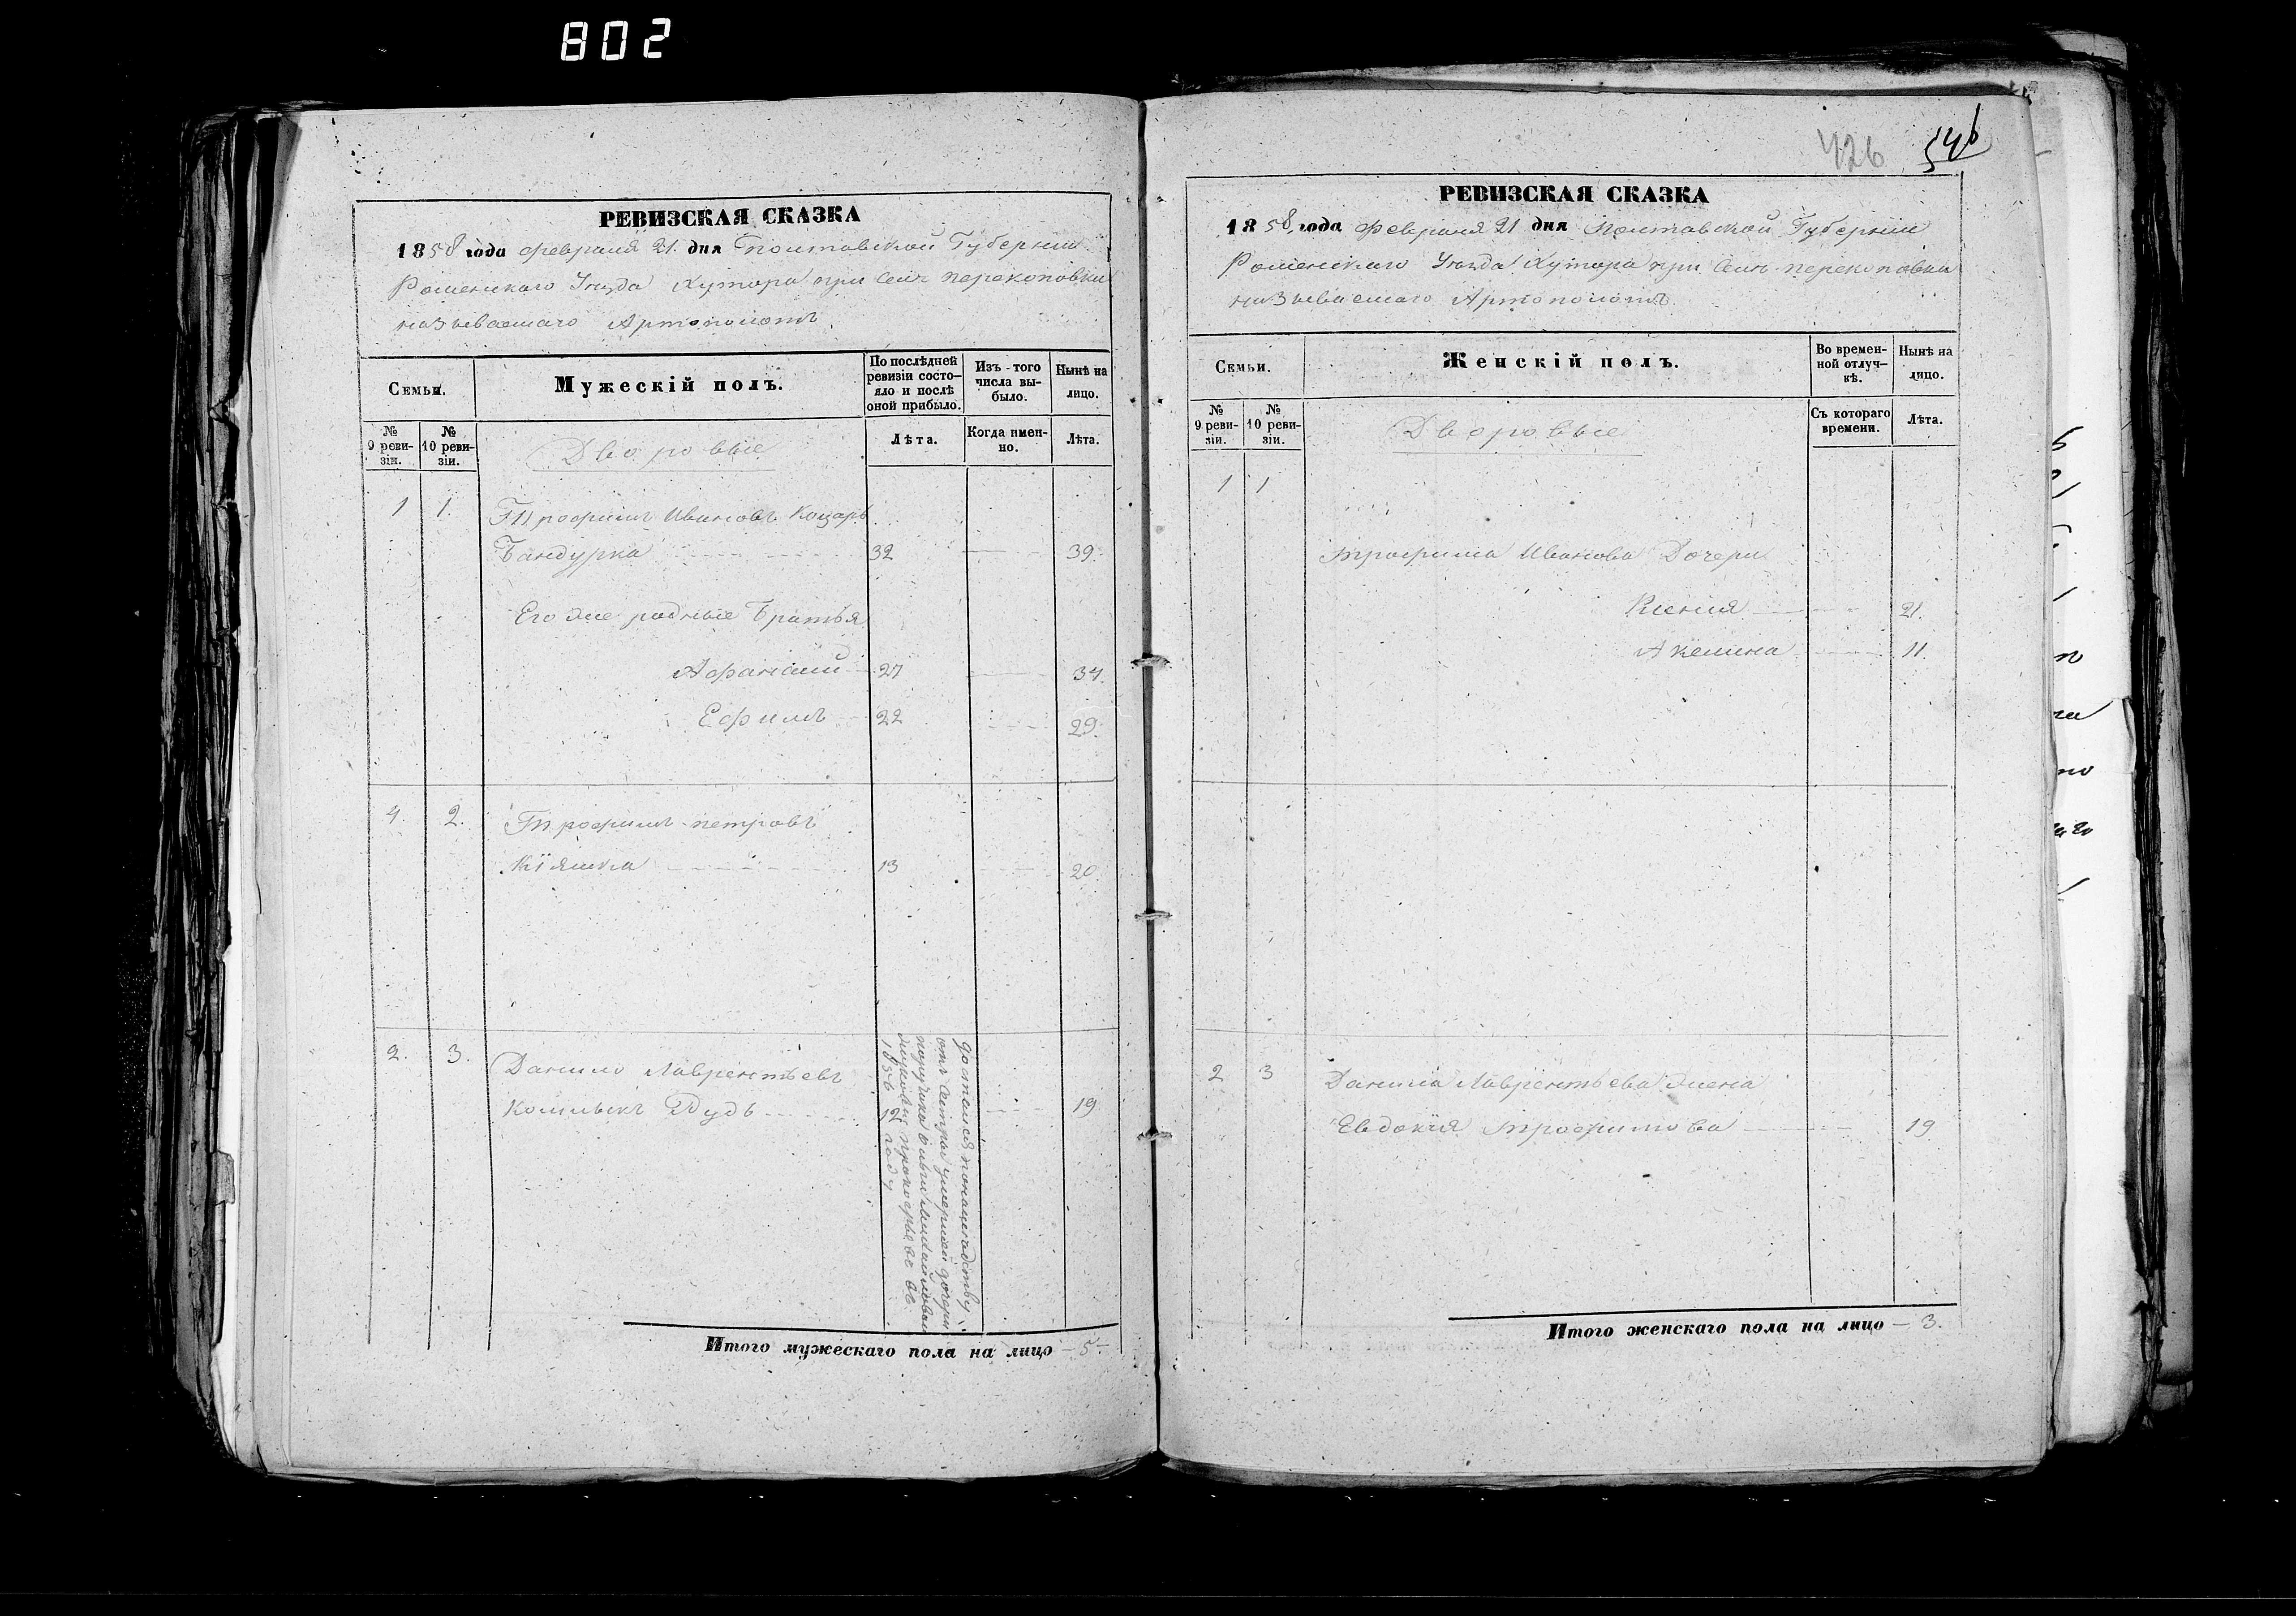 802
РЕВИЗСКАЯ СКАЗКА
1858 года Февраля 21 дня Полтавской Губерніи
Роменскаго Уѣзда Хутора при Селѣ Перекоповки
называемаго Артополотъ
Семьи.
Мужескій полъ.
По послѣдней ревизіи состояло и послѣ оной прибыло.
Изъ-того числа выбыло.
Нынѣ на лицо.
№ 9 ревизіи.
№ 10 ревизіи.
Дворовые
Лѣта.
Когда именно.
Лѣта.
1 1. Трофимъ Ивановъ Коцарь
Бандурка 32 39.
Его же родные Братья
Афанасій 27 34.
Ефимъ 22 29.
4. 2. Трофимъ Петровъ
Кіяшка 13 20.
2. 3. Данило Лаврентьевъ
Дудъ 12 19
достался по наследству
отъ Сестры умершей дочери
въ
1856 году
Итого мужескаго пола на лицо – 5 –
426 546
РЕВИЗСКАЯ СКАЗКА
1858 года Февраля 21 дня Полтавской Губерніи
Роменскаго Уѣзда Хутора при Селѣ Перекоповки
называемаго Артополотъ
Семьи.
Женскій полъ.
Во временной отлучкѣ.
Нынѣ на лицо.
№ 9 ревизіи.
№ 10 ревизіи.
Дворовые
Съ котораго времени.
Лѣта.
1 1
Трофима Иванова Дочери
Ксенія 21.
Акелина 11.
2 3 Данила Лаврентьева жена
Евдокія Трофимова 19
Итого женскаго пола на лицо – 3.